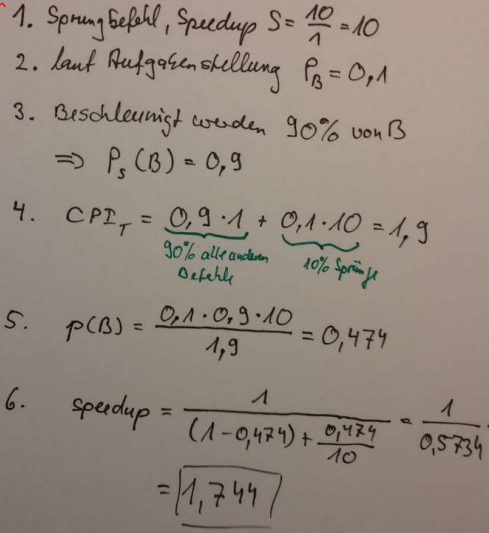 1. Sprungbefehl, Speedup S = 10/1 = 10
2. laut Aufgabenstellung P_B = 0,1
3. Beschleunigt werden 90% von B
⇒ P_s(B) = 0,9
4. CPI_T = 0,9 · 1 + 0,1 · 10 = 1,9
90% alle anderen Befehle
10% Sprünge
5. p(B) = (0,1 · 0,9 · 10)/(1,9) = 0,474
6. speedup = 1/((1 - 0,474) + 0,474/10) = 1/0,5734
= 1,744